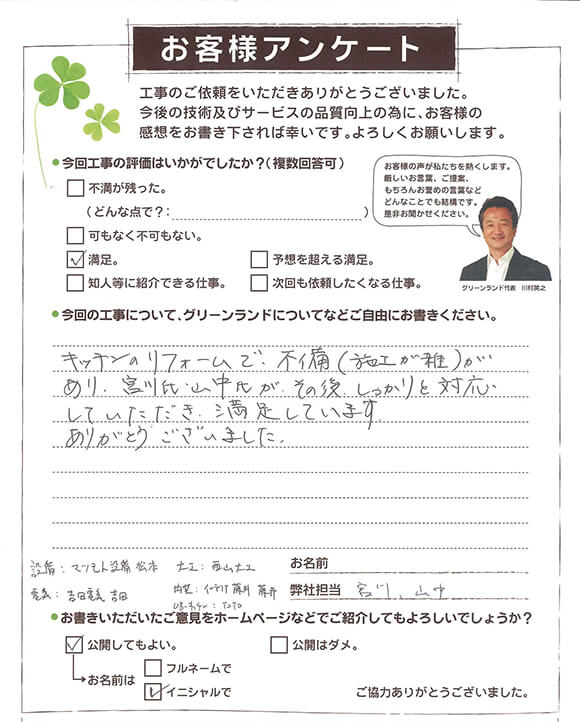 お客様アンケート
工事のご依頼をいただきありがとうございました。
今後の技術及びサービスの品質向上の為に、お客様の
感想をお書き下されば幸いです。よろしくお願いします。
●今回工事の評価はいかがでしたか?(複数回答可)
お客様の声が私たちを熱くします。
厳しいお言葉、ご提案、
もちろんお誉めの言葉など
どんなことでも結構です。
是非お聞かせください。
不満が残った。
(どんな点で?: )
可もなく不可もない。
満足。 予想を超える満足。
知人等に紹介できる仕事。 次回も依頼したくなる仕事。
グリーンランド代表 川村英之
●今回の工事について、グリーンランドについてなどご自由にお書きください。
キッチンのリフォームで、不備(施工が雑)が
あり、宮川氏・山中氏が、その後、しっかりと対応
していただき、満足しています。
ありがとうございました。
設備:マツモト設備 松本 大工:西山大工
お名前
電気:吉田電気 吉田 内装:インテリア藤井 藤井
弊社担当 宮川、山中
UB、キッチン:TOTO
●お書きいただいたご意見をホームページなどでご紹介してもよろしいでしょうか?
公開してもよい。 公開はダメ。
お名前は フルネームで
イニシャルで
ご協力ありがとうございました。